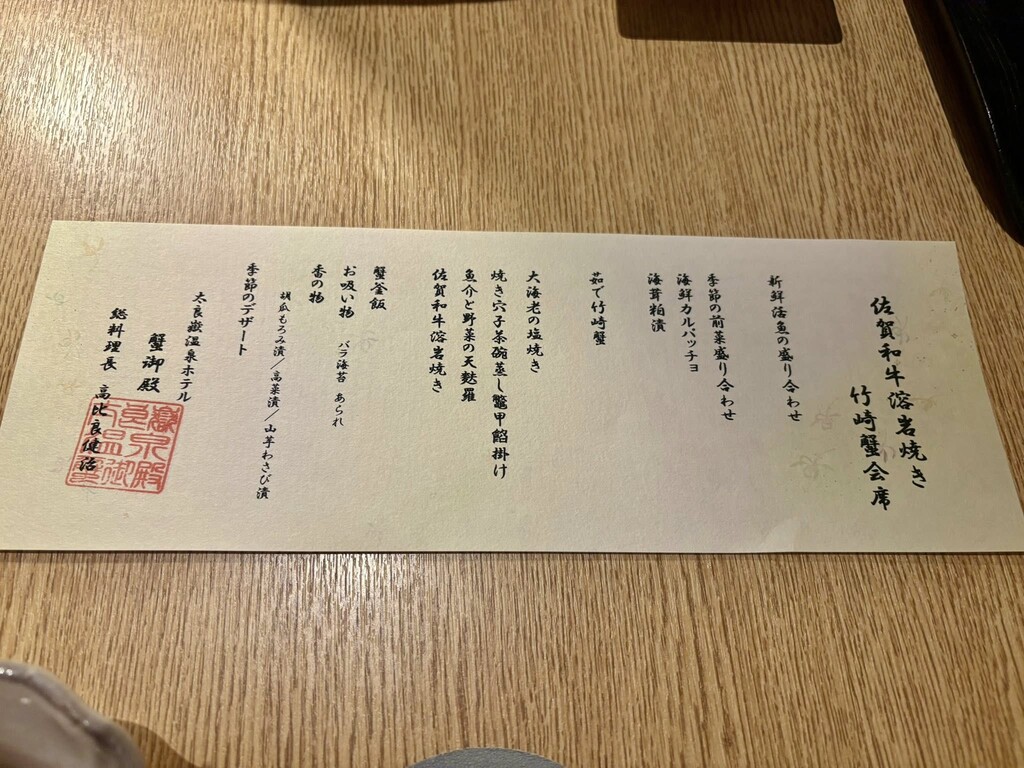 佐賀和牛溶岩焼き
竹崎蟹会席
新鮮活魚の盛り合わせ
季節の前菜盛り合わせ
海鮮カルパッチョ
海茸粕漬
茹で竹崎蟹
大海老の塩焼き
焼き穴子茶碗蒸し鼈甲餡掛け
魚介と野菜の天麩羅
佐賀和牛溶岩焼き
蟹釜飯
お吸い物 バラ海苔 あられ
香の物
胡瓜もろみ漬/高菜漬/山芋わさび漬
季節のデザート
太良嶽温泉ホテル
蟹御殿
総料理長 高比良健治